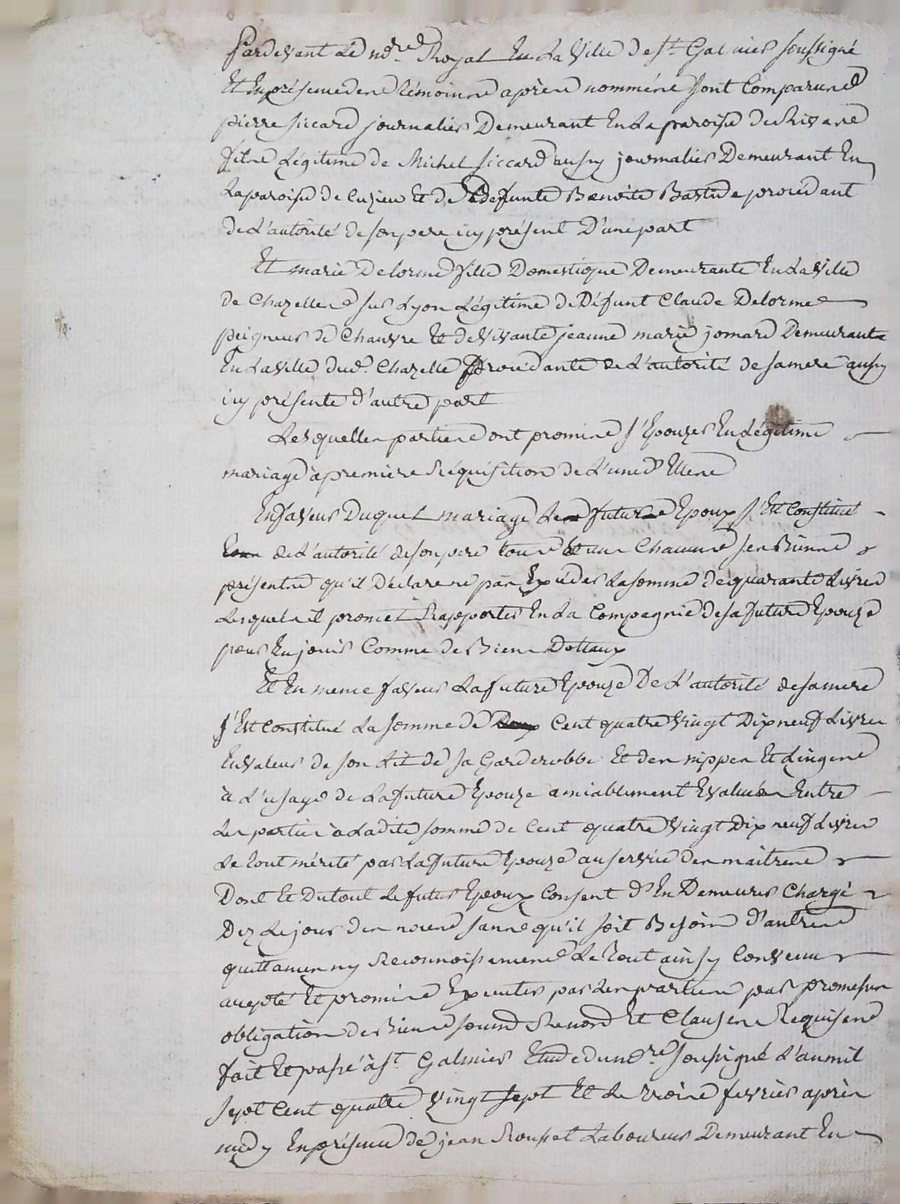 Pardevant Le nore Royal En La Ville de st Galmier soussigné
Et En présence des témoins après nommés sont Comparus
pierre siccard journalier Demeurant En La paroisse de Rivas
fils Légitime de Michel siccard aussy journalier Demeurant En
La paroisse de Cuzieu Et de Défunte Benoite Bastide procédant
de L'autorité de son pere icy présent D'une part
Et marie Delorme fille Domestique Demeurante En La Ville
de Chazelles sur Lyon Légitime de Défunt Claude Delorme
peigneur de Chanvre Et de Vivante jeanne marie jomard Demeurante
En La Ville dud. Chazelle Procédante de L'autorité de sa mere aussy
icy présente d'autre part
Lesquelles parties ont promis s'Epouzer En Légitime
mariage à premiere Réquisition de L'une D'Elles
En faveur Duquel mariage Le futur Epoux s'Est Constitué
de L'autorité de son pere tous Et un Chacuns ses Biens
présents qu'il Déclare ne pas Excéder La somme de quarante Livres
Lesquels il promet Rapporter En La Compagnie de sa future Epouze
pour En jouir Comme de Biens Dotaux
Et En meme faveur La future Epouze De L'autorité de sa mere
s'Est Constitué La somme de Cent quatre Vingt Dix neuf Livres
En valeur de son Lit de sa Garderobbe Et des nippes Et Linges
à L'usage de La future Epouze amiablement Evalués Entre
Les parties à Ladite somme de Cent quatre Vingt Dix neuf Livres
Le tout mérité par La future Epouze au service des maitres
Dont Et Du tout Le futur Epoux Consent D'En Demeurer Chargé
Dez Le jour des noces sans qu'il soit Besoin d'autres
quittances ny Reconnoissances Le Tout ainsy Convenu
accepté Et promis Executer par Les parties par promesses
obligation de Biens soumd Renond Et Clauses Requises
fait Et passé à st Galmier Etude du nre soussigné L'an mil
sept Cent quatre Vingt sept Et Le février après
midy En présence de jean Laboureur Demeurant En